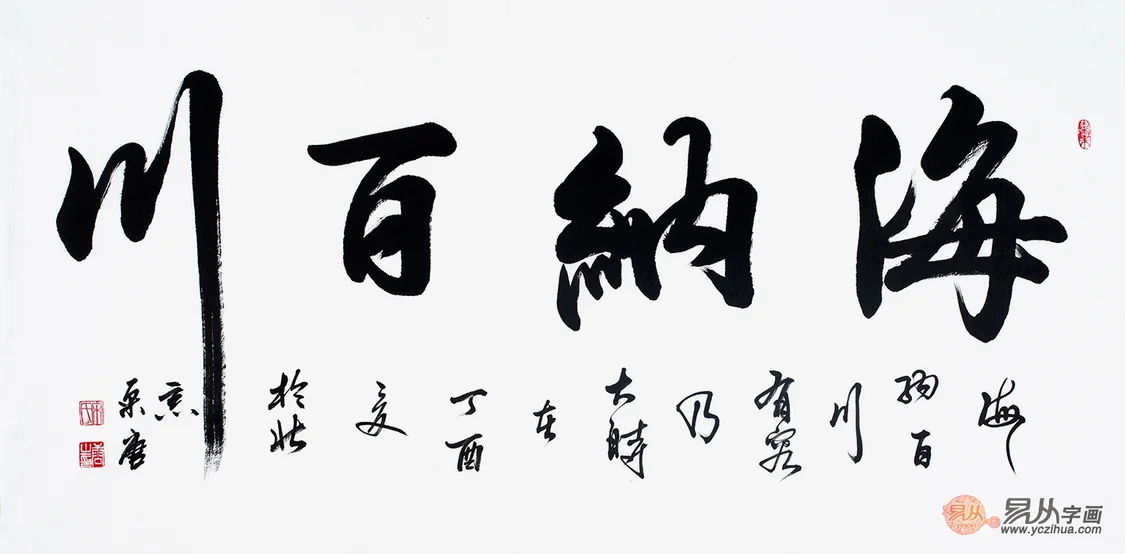 海納百川
海
納百
川
有容
乃
大時
在
丁酉
夏
於北
京
易从
易从字画
www.yczihua.com